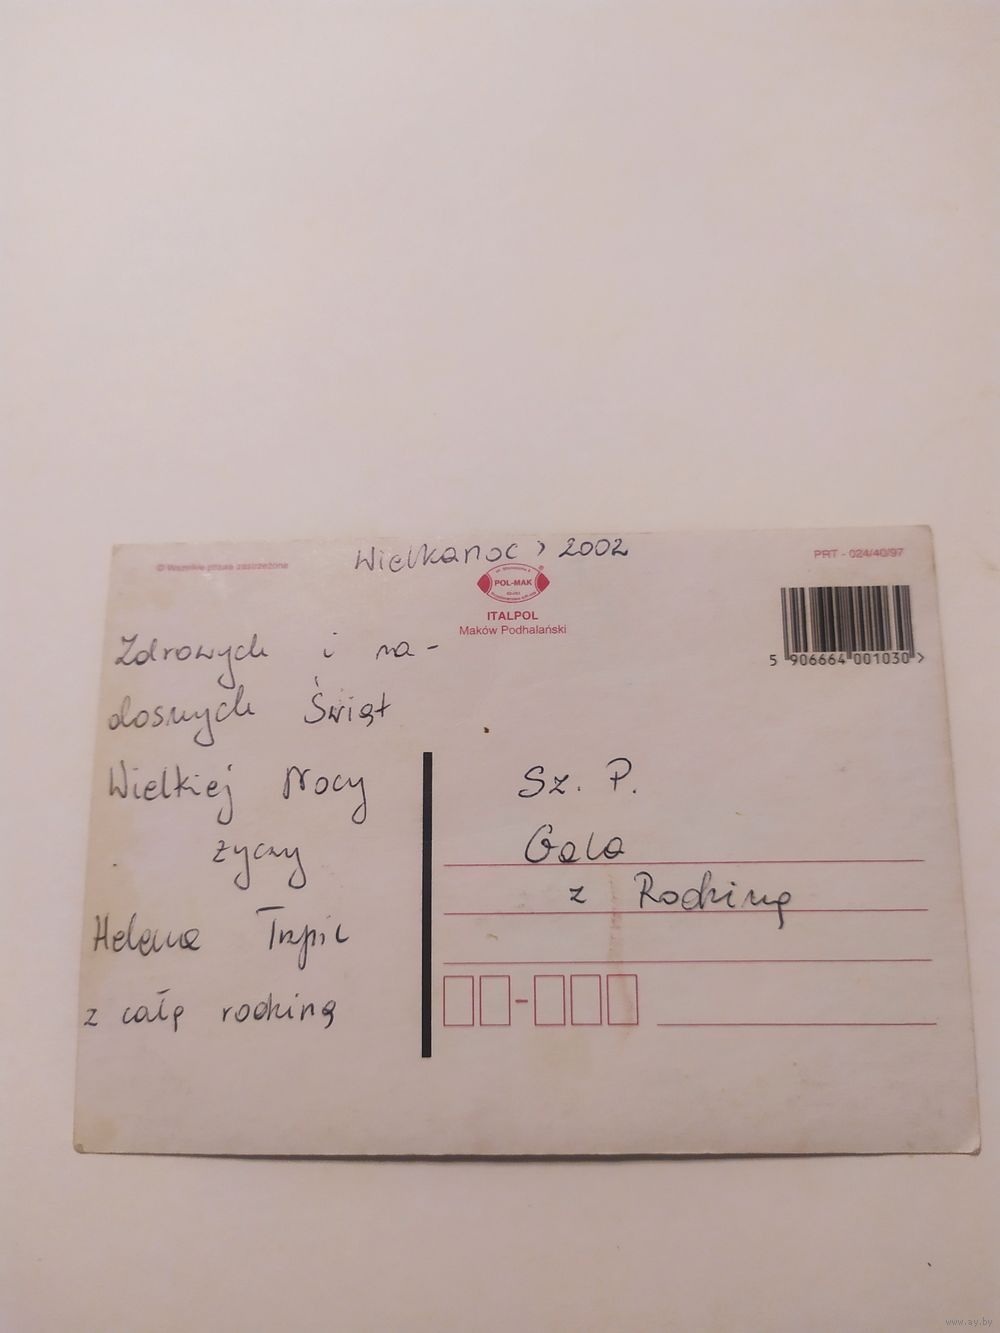 Wielkanoc, 2002
© Wszelkie prawa zastrzeżone
PRT - 024/40/97
POL-MAK
ITALPOL
Maków Podhalański
5 906664 001030 >
Zdrowych i ra-
dosnych Świąt
Wielkiej Nocy
życzy
Helena
z całą rodziną
Sz. P.
Gala
z Rodziną
www.ay.by